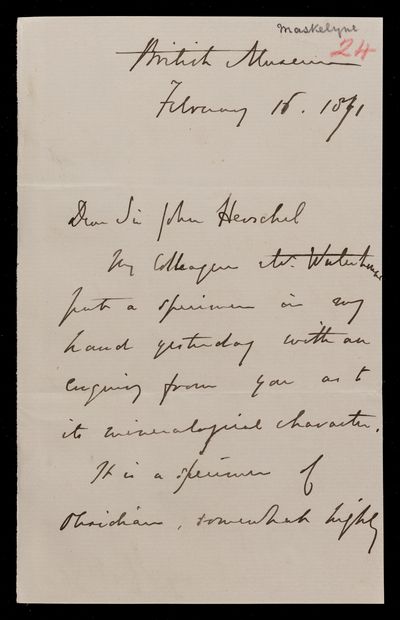 Maskelyne
24
British Museum
February 16. 1871
Dear Sir John Herschel
My Colleague Mr. Waterhouse
put a specimen in my
hand yesterday with an
enquiry from you as to
its mineralogical character.
It is a specimen of
Obsidian, somewhat highly